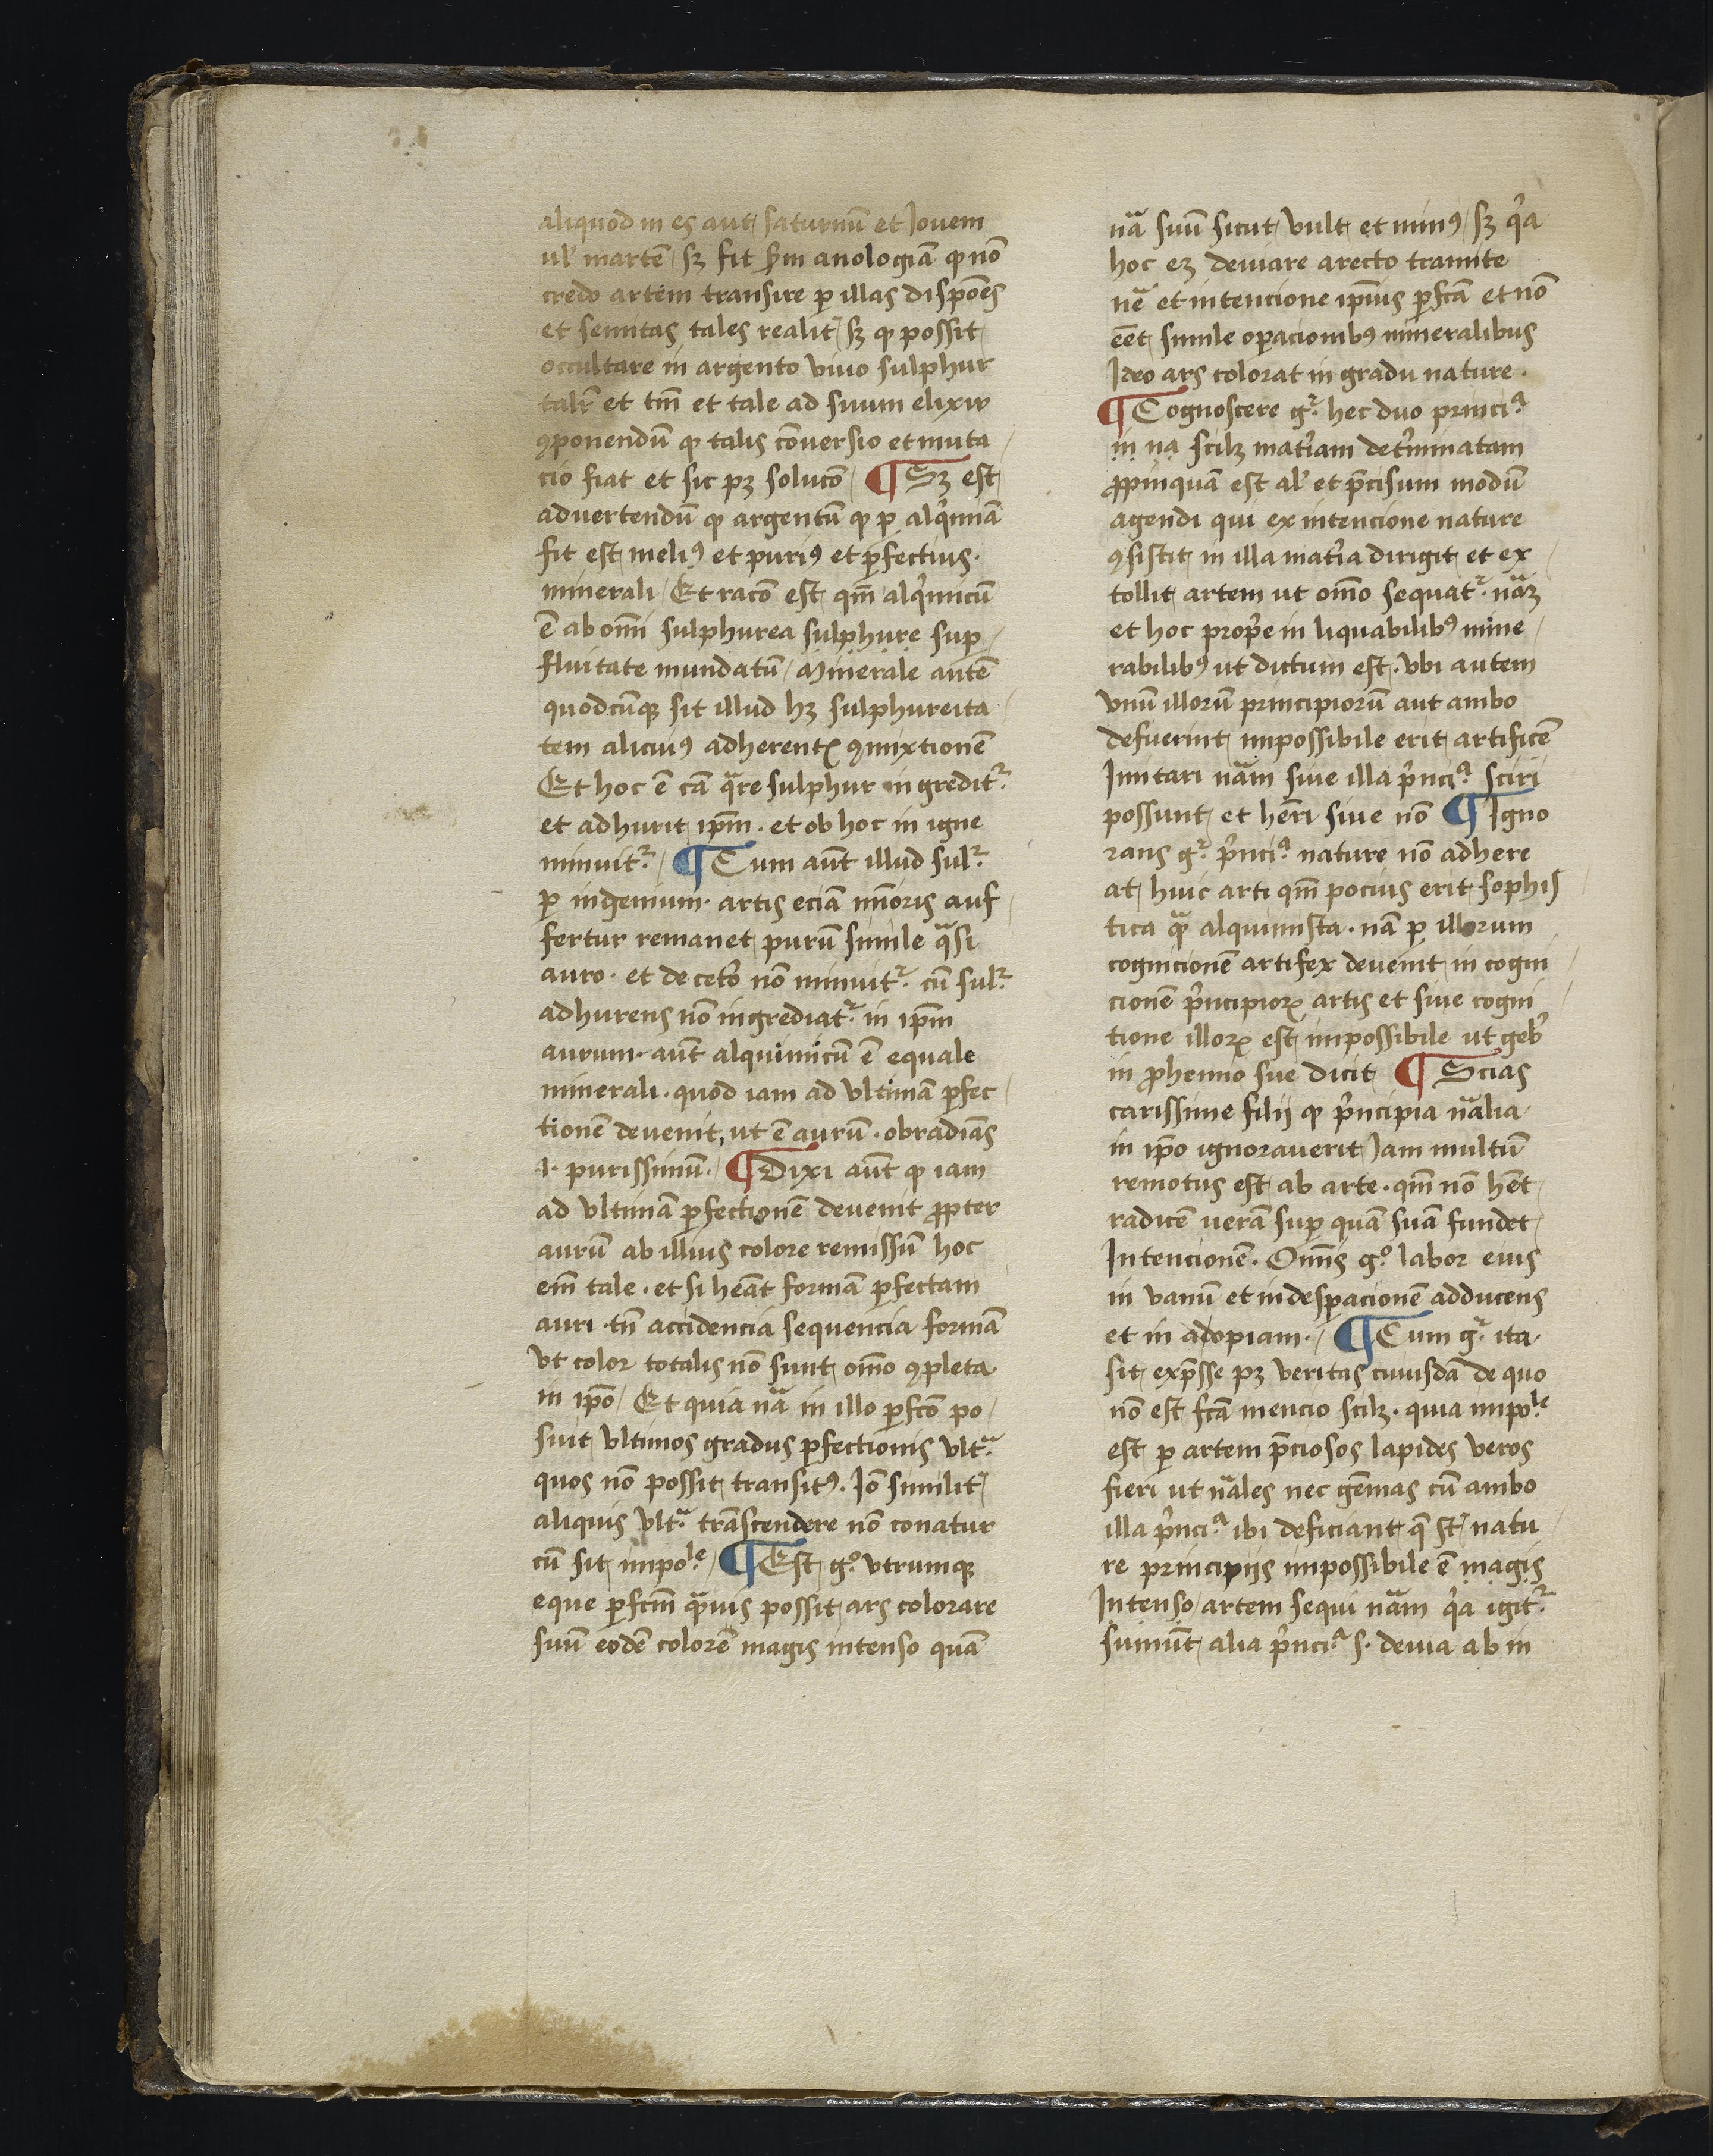 aliquod in es aut saturnū et Jouem
ul' martē / sꝫ fit scđm anologiā ꝙ nō
credo artem transire ꝑ illas dispōes
et semitas tales realit̄ / sꝫ ꝙ possit
occultare in argento viuo sulphur
talr̄ et tm̄ et tale ad suum elixir
ꝯponendū ꝙ talis cōuersio et muta /
cio fiat et sic pꝫ solucō / ¶ Sꝫ est
aduertendū ꝙ argentū ꝙ ꝑ alqͥmiā
fit est meliꝰ et puriꝰ et ꝑfectius ·
minerali / Et racō est qm̄ alqͥmicū
ē ab om̄i sulphurea sulphure sup /
fluitate mundatū / Minerale autē
quodcūqꝫ sit illud hꝫ sulphureita /
tem aliciuꝰ adherentꝭ ꝯmixtionē
Et hoc ē cā qᷓre sulphur ingreditᷣ
et adhurit ip̄m · et ob hoc in igne
minuitᷣ / ¶ Cum aūt illud sulᷣ
ꝑ ingenium · artis eciā mīoris auf /
fertur remanet purū simile qᷓsi
auro · et de cetō nō minuitᷣ cū sulᷣ
adhurens nō ingrediatᷣ in ip̄m
aurum · aūt alquimicū ē equale
minerali · quod iam ad vltimā ꝑfec /
tionē deuenit, ut ē aurū · obradiās
·i· purissimū · / ¶ Dixi aūt ꝙ iam
ad vltimā ꝑfectionē deuenit ꝓpter
aurū ab illius colore remissū hoc
em̄ tale · et si heāt formā ꝑfectam
auri · tn̄ accidencia sequencia formā
vt color totalis nō sunt om̄o ꝯpleta
in ip̄o / Et quia nᷓa in illo ꝑfcō po /
suit vltimos gradus ꝑfectionis vltᷓ
quos nō possit transitꝰ · Iō similit̄
aliquis vltᷓ trāscendere nō conatur
cū sit impoˡᵉ / ¶ Est gͦ vtrumqꝫ
eque ꝑfcm̄ qᷓuis possit ars colorare
suū eodē colorē magis intenso quā
nᷓa suū sicut vult et minꝰ / sꝫ qͥa
hoc eꝫ deuiare arecto tramite
nᷓe et intencione ip̄ius ꝑfcā et nō
eēt simile oꝑacionibꝰ mineralibus
Ideo ars colorat in gradu nature ·
¶ Cognoscere gᷣ hec duo princiᵃ
in na scilꝫ matͥiam detͥminatam
ꝓpinquā est al' et p̄cisum modū
agendi qui ex intencione nature
ꝯsistit in illa matͥia dirigit et ex /
tollit artem ut om̄o sequatᷣ nᷓaꝫ
et hoc prop̄e in liquabilibꝰ mine /
rabilibꝰ ut dictum est · vbi autem
vnū illorū principiorū aut ambo
defuerint impossibile erit artificē
Imitari nᷓam siue illa pͥnciᵃ sciri
possunt et hēri siue nō ¶ Igno
rans gᷣ pͥnciᵃ nature nō adhere
at huic arti qm̄ pocius erit sophis
tica qᷓ alquimista · nā ꝑ illorum
cognicionē artifex deuenit in cogni /
cionē pͥncipioꝝ artis et siue cogni /
tione illoꝝ est impossibile ut geb'
in ꝓhemio sue dicit ¶ Scias
carissime filij ꝙ pͥncipia nᷓalia
in ip̄o ignorauerit Jam multū
remotus est ab arte · qm̄ nō hēt
radicē uerā suꝑ quā suā fundet
Intencionē · Om̄is gͦ labor eius
in vanū et in desꝑacionē adducens
et in adopiam · / ¶ Cum gᷣ ita
sit exp̄sse pꝫ veritas cuiusdā de quo
nō est fcā mencio scilꝫ · quia impoˡᵉ
est ꝑ artem p̄ciosos lapides veros
fieri ut nᷓales nec gēmas cū ambo
illa pͥnciᵃ ibi deficiant q̄ st̄ natu /
re principijs impossibile ē magis
Intenso / artem sequi nᷓam qͥa igitᷣ
sumūt alia pͥnciᵃ s · deuia ab in